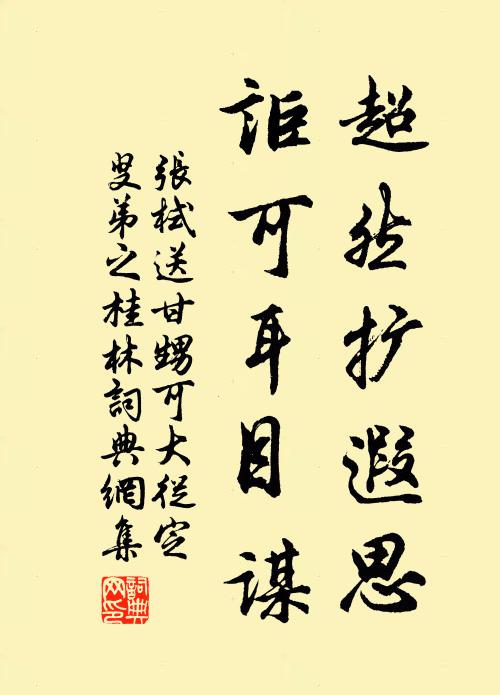 超然扩遐思
詎可耳目謀
張栻送甘甥可大從定
叟弟之桂林詞典網集